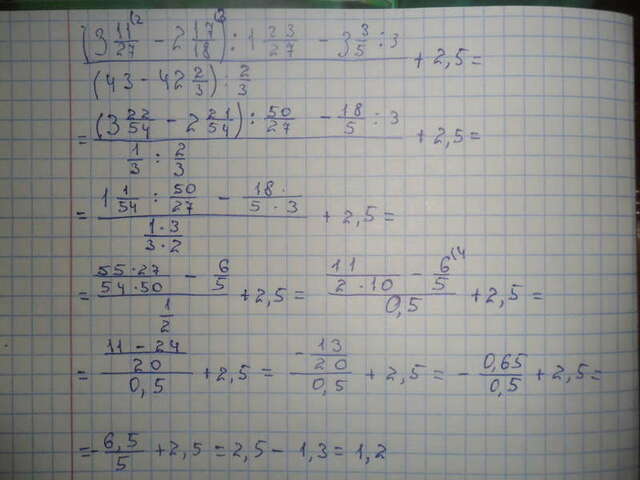 ((3 11/27 - 2 17/18) : 1 23/27 - 3 3/5 : 3) / ((43 - 42 2/3) : 2/3) + 2,5 =
= ((3 22/54 - 2 21/54) : 50/27 - 18/5 : 3) / (1/3 : 2/3) + 2,5 =
= (1 1/54 : 50/27 - 18·/5·3) / (1·3/3·2) + 2,5 =
= (55·27/54·50 - 6/5) / (1/2) + 2,5 = (11/2·10 - 6/5) / 0,5 + 2,5 =
= ((11 - 24)/20) / 0,5 + 2,5 = (-13/20) / 0,5 + 2,5 = - 0,65/0,5 + 2,5 =
= - 6,5/5 + 2,5 = 2,5 - 1,3 = 1,2